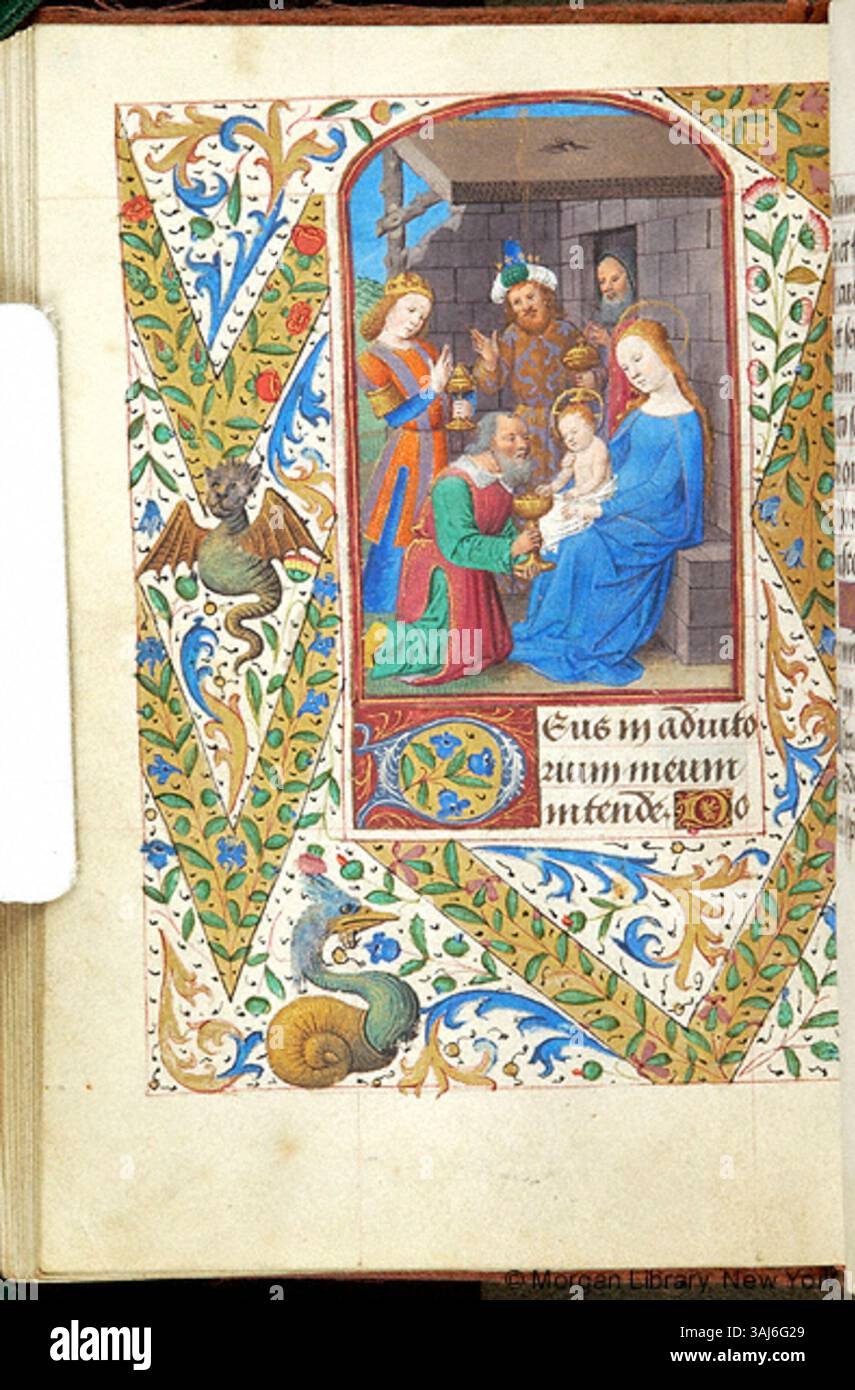 Deus in adiuto
rium meum
intende. Do
© Morgan Library, New York
alamy
Image ID: 3AJ6G29
www.alamy.com